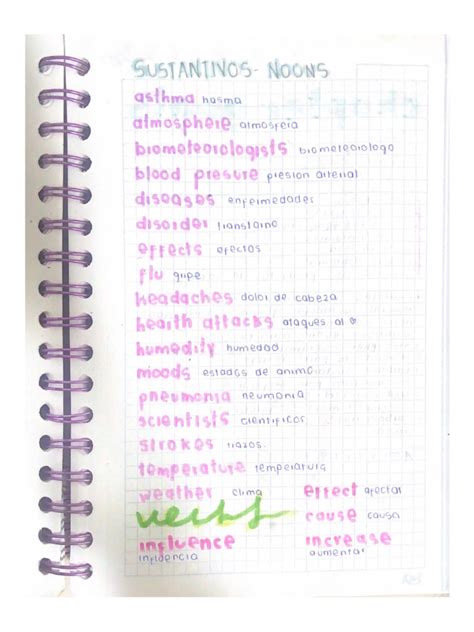 SUSTANTIVOS - NOONS
asthma hasma
atmosphere atmosfera
biometeorologists biometeorologo
blood presure presion arterial
diseases enfermedades
disorder transtorno
effects efectos
flu gripe
headaches dolor de cabeza
hearth attacks ataques al ♡
humedity humedad
moods estados de animo
pneumonia neumonia
scientists cientificos
strokes trazos.
temperature temperatura
weather clima
verbs
influence
influencia
effect afectar
cause causa
increase
aumentar